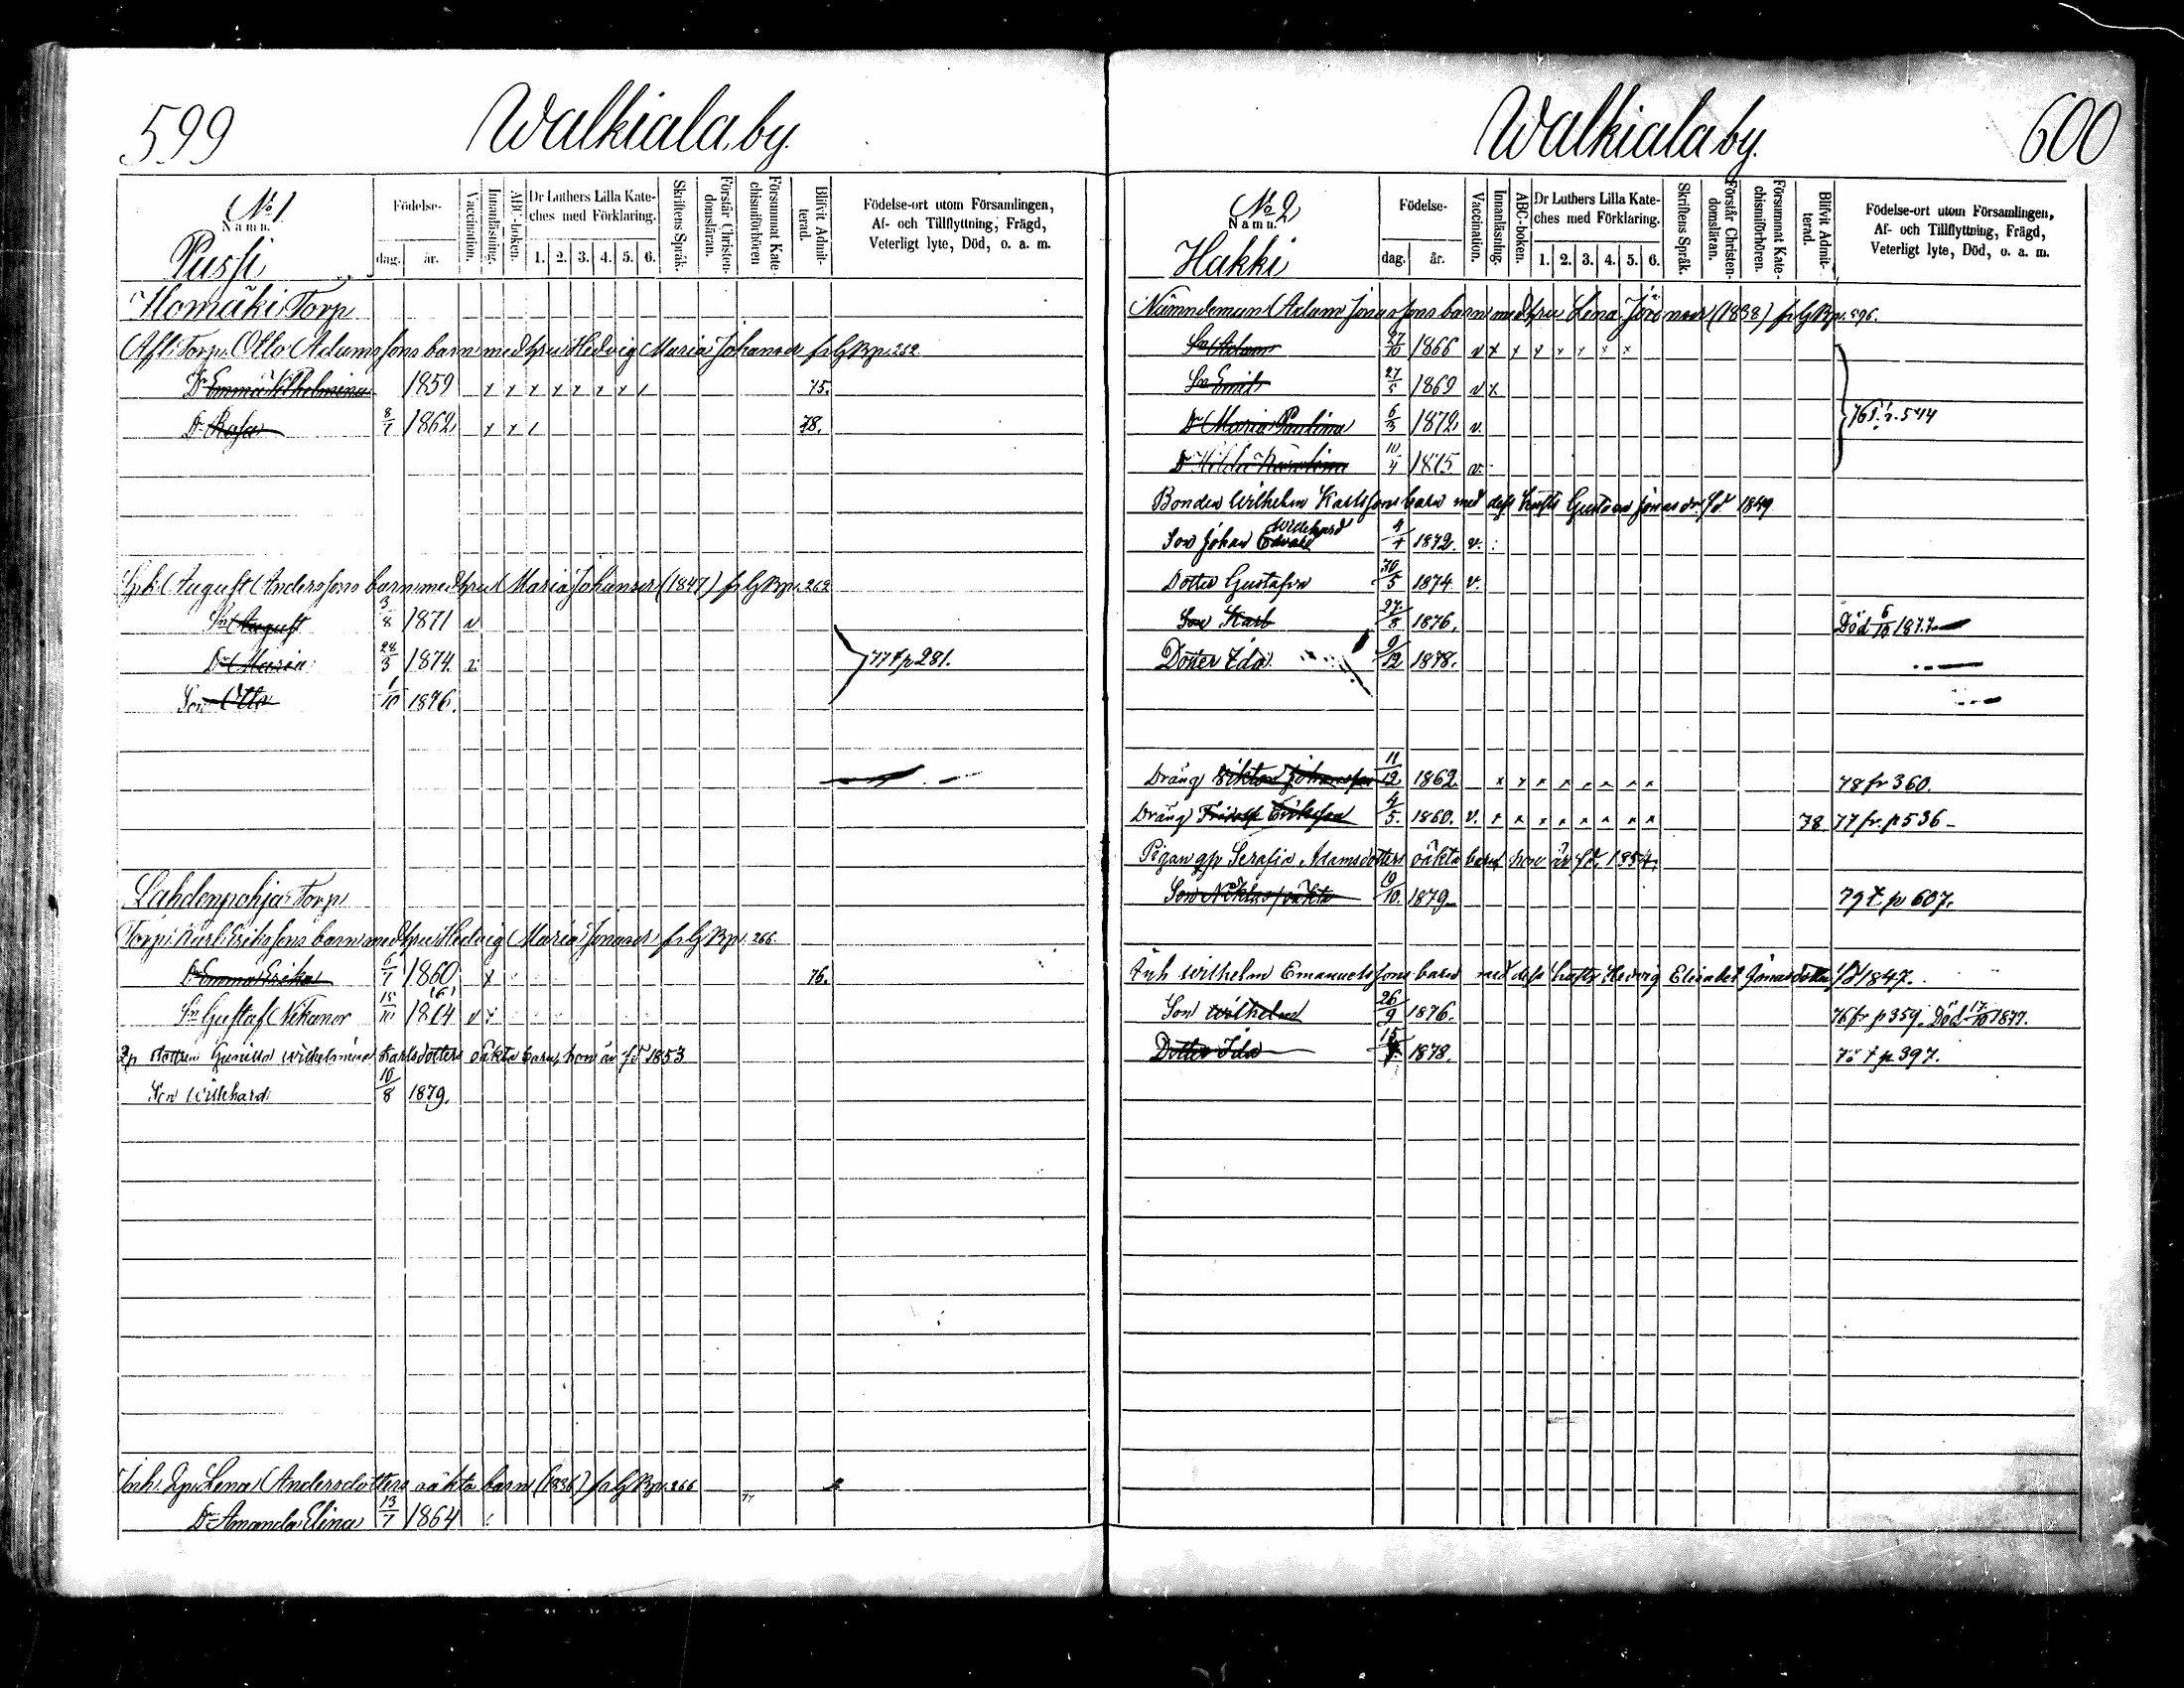 599
Walkiala by.
No 1.
Namn.
Födelse-
dag.
år.
Vaccination.
Innanläsning.
ABC-boken.
Dr Luthers Lilla Kate-
ches med Förklaring.
1. 2. 3. 4. 5. 6.
Skriftens Språk.
Förstår Christen-
domsläran.
Försummat Kate-
chismiförhören
Blifvit Admit-
terad.
Födelse-ort utom Församlingen,
Af- och Tillflyttning, Frägd,
Veterligt lyte, Död, o. a. m.
Pussi
Ilomäki Torp
Afl. Torp. Otto Adamssons barn med hru Hedvig Maria Johansdr fr GBp. 262
Dr Emma Vilhelmina 1859 x x x x x x x x 75.
Dr Rosa 8/7 1862 x x x 78.
August Anderssons barn med hru Maria Johansdr (1847) fr GBp. 262
Sn August 3/8 1871 v
Dr Maria 28/3 1874 v 77 t p 281.
Son Otto 1/10 1876.
Lahdenpohja Torp
Torp. Karl Erikssons barn med hru Hedvig Maria Jonasdr fr GBp. 266.
Dr Emma Erika 6/7 1860 x 76.
Sn Gustaf Nikanor 15/10 1864 v
Gunilla Wilhelmina Karlsdotters oäkta barn, hon är fd 1853
Son Willehard 10/8 1879.
Inh. Qp. Lena Andersdotters oäkta barn (1836) fr GBp. 266
Dr Amanda Elina 13/7 1864
Walkiala by.
600
No 2
Namn.
Födelse-
dag.
år.
Vaccination.
Innanläsning.
ABC-boken.
Dr Luthers Lilla Kate-
ches med Förklaring.
1. 2. 3. 4. 5. 6.
Skriftens Språk.
Förstår Christen-
domsläran.
Försummat Kate-
chismiförhören.
Blifvit Admit-
terad.
Födelse-ort utom Församlingen,
Af- och Tillflyttning, Frägd,
Veterligt lyte, Död, o. a. m.
Hakki
Nämndeman Adam Jonassons barn med hru Lena (1838) fr GBp. 596.
Sn Adam 27/10 1866 v x x x x x x x
Sn Emil 27/5 1869 v x
Dr Maria Paulina 6/3 1872 v. 544
Dr Hilda Karolina 10/4 1875 v.
Bonden Wilhelm Karlssons barn med dess hustr Gustava Jonasdr fd 1849
Son Johan Edvard Willehard 4/4 1872. v.
Dotter Gustafva 30/5 1874 v.
Son Karl 27/8 1876. Död 6/10 1877.
Dotter Ida 9/12 1878.
Dräng Viktor Johansson 11/12 1862. x x x x x x x x 78 fr 360.
Dräng Fridolf Eriksson 4/5. 1860. v. x x x x x x x x 78 77 fr. p 536
Pigan qp Serafia Adamsdotters oäkta barn hon är fd. 1854.
Son Niklas, oäkta 19/10. 1879 79 t. p 607.
Inh Wilhelm Emanuelssons barn med dess hustr Hedvig Elisabet Jonasdotter, fd 1847.
Son Wilhelm 26/9 1876. 76 fr p 359. Död 17/10 1877.
Dotter Ida 1878. 78 t p 397.